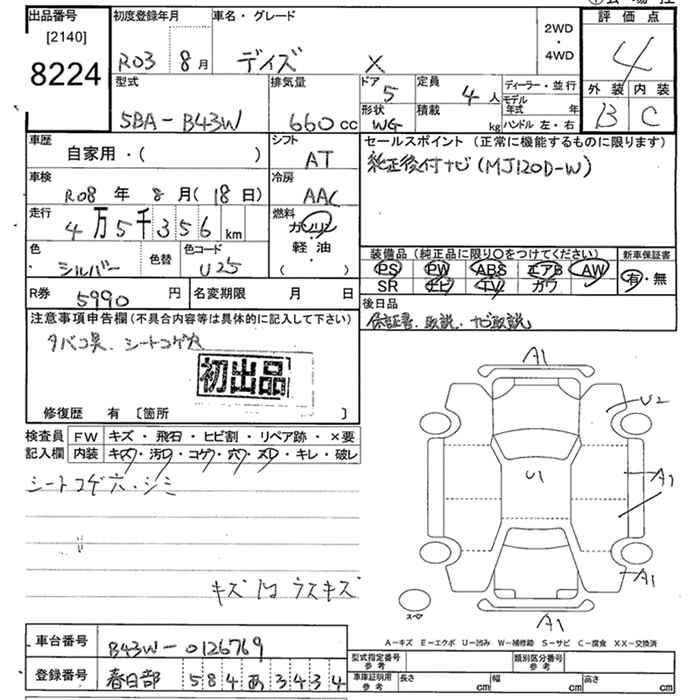 出品番号
[2140]
8224
初度登録年月
R03 8月
車名・グレード
デイズ X
2WD
・
4WD
評価点
4
型式
5BA-B43W
排気量
660cc
ドア
5
定員
4人
ディーラー・並行
モデル年式 年
ハンドル 左・右
形状
WG
積載
kg
外装 内装
B C
車歴
自家用・( )
シフト
AT
セールスポイント(正常に機能するものに限ります)
純正後付ナビ(MJ120D-W)
車検
R08年 8月(18日)
冷房
AAC
走行
4万5千356km
燃料
ガソリン
軽・油
( )
色
シルバー
色替
色コード
U25
装備品(純正品に限り○をつけてください)
PS PW ABS エアB AW
SR ナビ TV カワ
新車保証書
有・無
R券
5990円
名変期限 月 日
後日品
保証書、取説、ナビ取説
注意事項申告欄(不具合内容等は具体的に記入して下さい)
タバコ臭、シートコゲ穴
初出品
修復歴 有 〔箇所 〕
検査員記入欄
FW キズ・飛石・ヒビ割・リペア跡・×要
内装 キズ・汚レ・コゲ・穴・スレ・キレ・破レ
シートコゲ穴・シミ
キズ
ウスキズ
A1
U2
U1
A1
A1
A1
スペア
A-キズ E-エクボ U-凹み W-補修跡 S-サビ C-腐食 XX-交換済
車台番号
B43W-0126769
登録番号
春日部 584 あ 3434
型式指定番号
参考
類別区分番号
参考
車庫証明用
参考
長さ cm
幅 cm
高さ cm